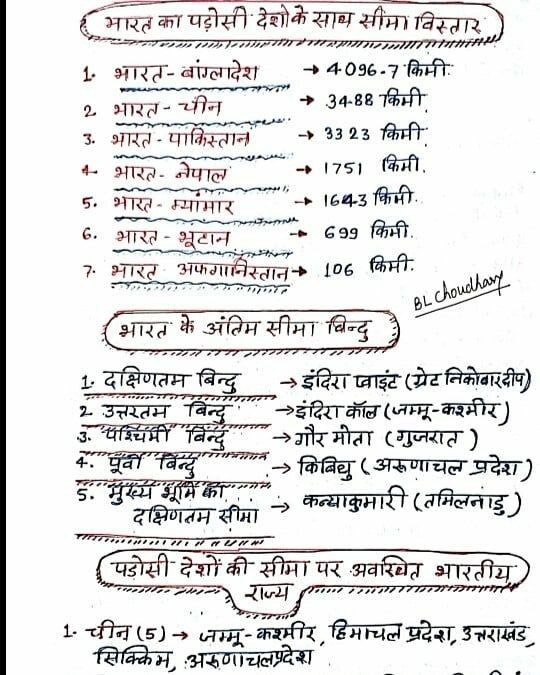 भारत का पड़ोसी देशो के साथ सीमा विस्तार
1. भारत - बांग्लादेश → 4096.7 किमी.
2 भारत - चीन → 3488 किमी
3. भारत - पाकिस्तान → 3323 किमी.
4. भारत - नेपाल → 1751 किमी.
5. भारत - म्यांमार → 1643 किमी.
6. भारत - भूटान → 699 किमी.
7. भारत - अफगानिस्तान → 106 किमी.
BL Choudhary
भारत के अंतिम सीमा बिन्दु
1. दक्षिणतम बिन्दु → इंदिरा प्वाइंट (ग्रेट निकोबार दीप)
2 उत्तरतम बिन्दु → इंदिरा कॉल (जम्मू-कश्मीर)
3. पश्चिमी बिन्दु → गौर मोता (गुजरात)
4. पूर्वी बिन्दु → किबिथु (अरूणाचल प्रदेश)
5. मुख्य भूमि की
दक्षिणतम सीमा → कन्याकुमारी (तमिलनाडु)
पड़ोसी देशों की सीमा पर अवस्थित भारतीय
राज्य
1. चीन (5) → जम्मू-कश्मीर, हिमाचल प्रदेश, उत्तराखंड,
सिक्किम, अरूणाचलप्रदेश